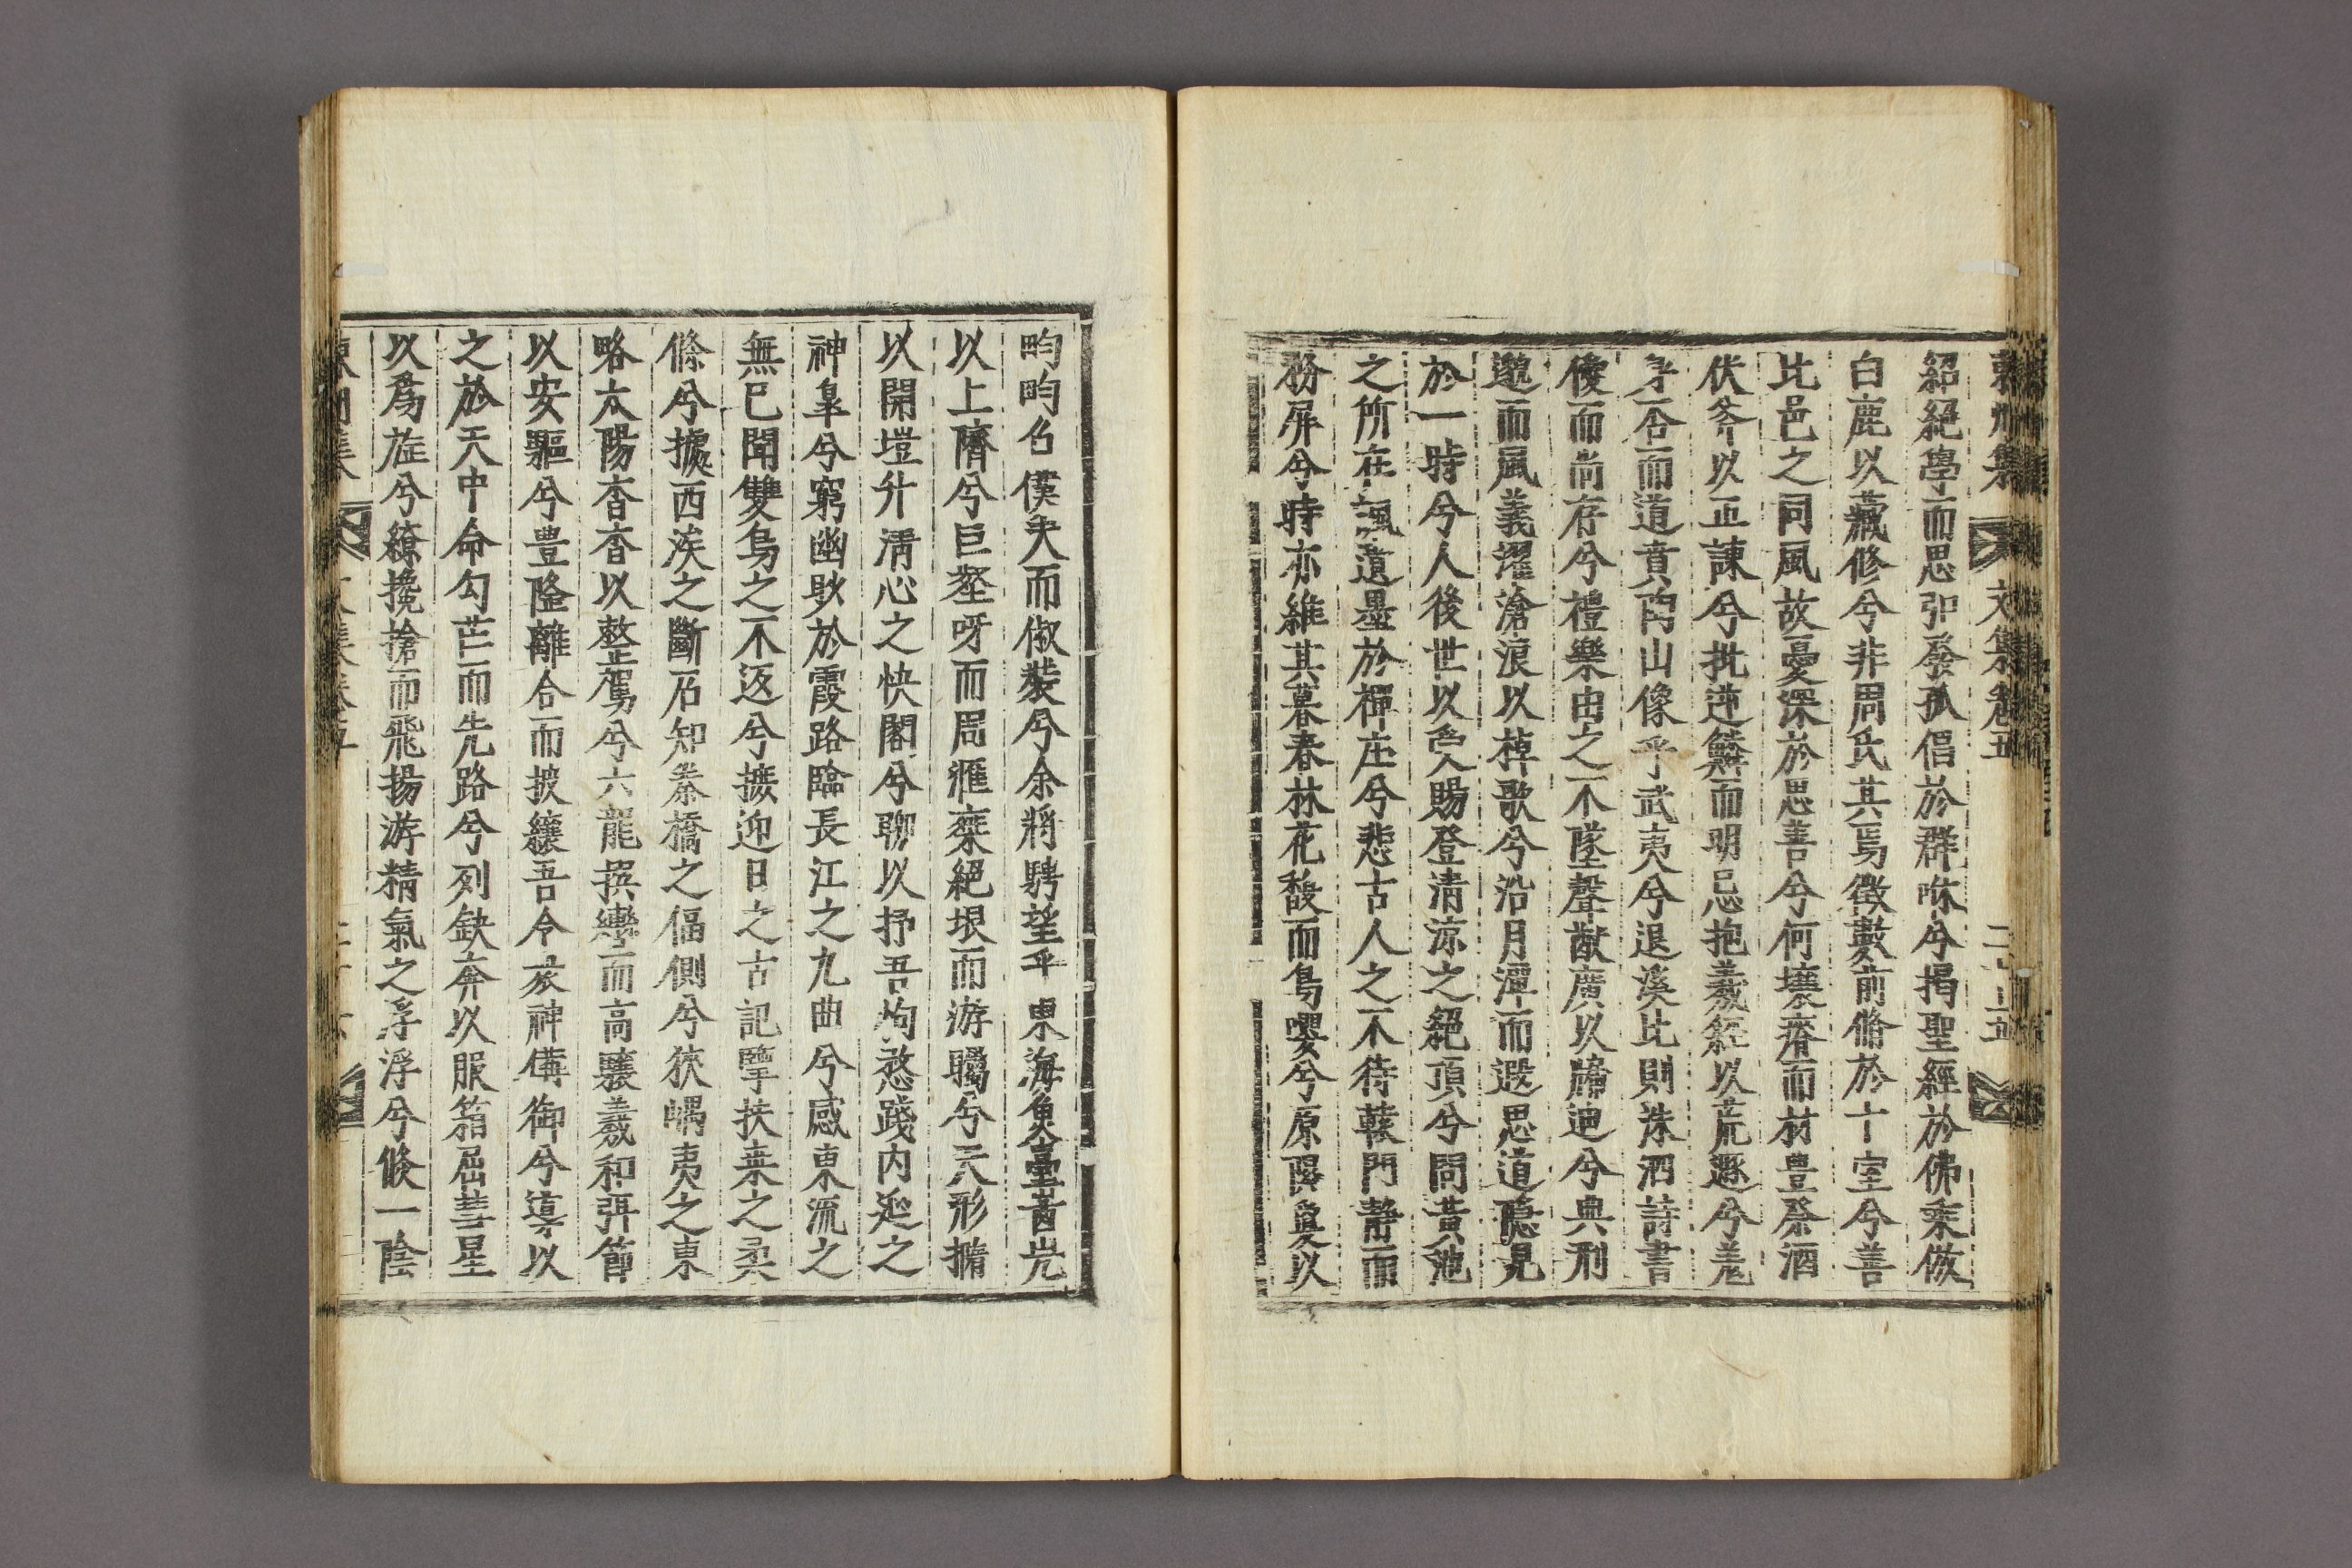 東州集 文集卷五 二十五
紹絕學而思卯發孤倡於群咻兮揭聖經於佛乘倣
白鹿以藏修兮非周氏其焉徵數前脩於十室兮善
比邑之同風故憂深於思善兮何壞瘠而材豊祭酒
伏斧以正諫兮批逆鱗而明忌抱羲經以荒遯兮羌
身否而道賁陶山像乎武夷兮退溪比則洙泗詩書
儓而尚存兮禮樂由之不墜聲猷廣以牖迪兮典刑
邈而風義濯滄浪以棹歌兮沿月潭而遐思道隱見
於一時兮人後世以受賜登淸涼之絕頂兮問黃池
之所在諷遺墨於禪庄兮悲古人之不待轅門靜而
務屛兮時亦維其暮春林花馥而鳥嚶兮原隰爰以
畇畇召僕夫而俶裝兮余將騁望乎 東海魚臺崒
以上隮兮巨壑呀而周滙棄絕垠而游矚兮天形擴
以開塏升淸心之快閣兮聊以抒吾拘憗踐內延之
神皐兮窮幽眇於霞路臨長江之九曲兮感東流之
無已聞雙鳥之不返兮摭迎日之古記擥扶桒之柔
條兮據西涘之斷石知秦橋之偪側兮狹嵎夷之東
略太陽杳杳以整駕兮六龍撰轡而高驤羲和弭節
以安驅兮豊隆離合而披纕吾令衆神備御兮導以
之於天中命勾芒而先路兮列缺奔以服箱屈彗星
以爲旌兮繚攙搶而飛揚游精氣之浮浮兮倏一陰